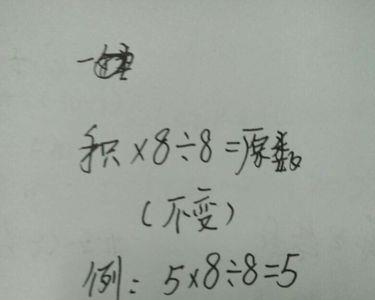 积×8÷8=原数
(不变)
例：5×8÷8=5